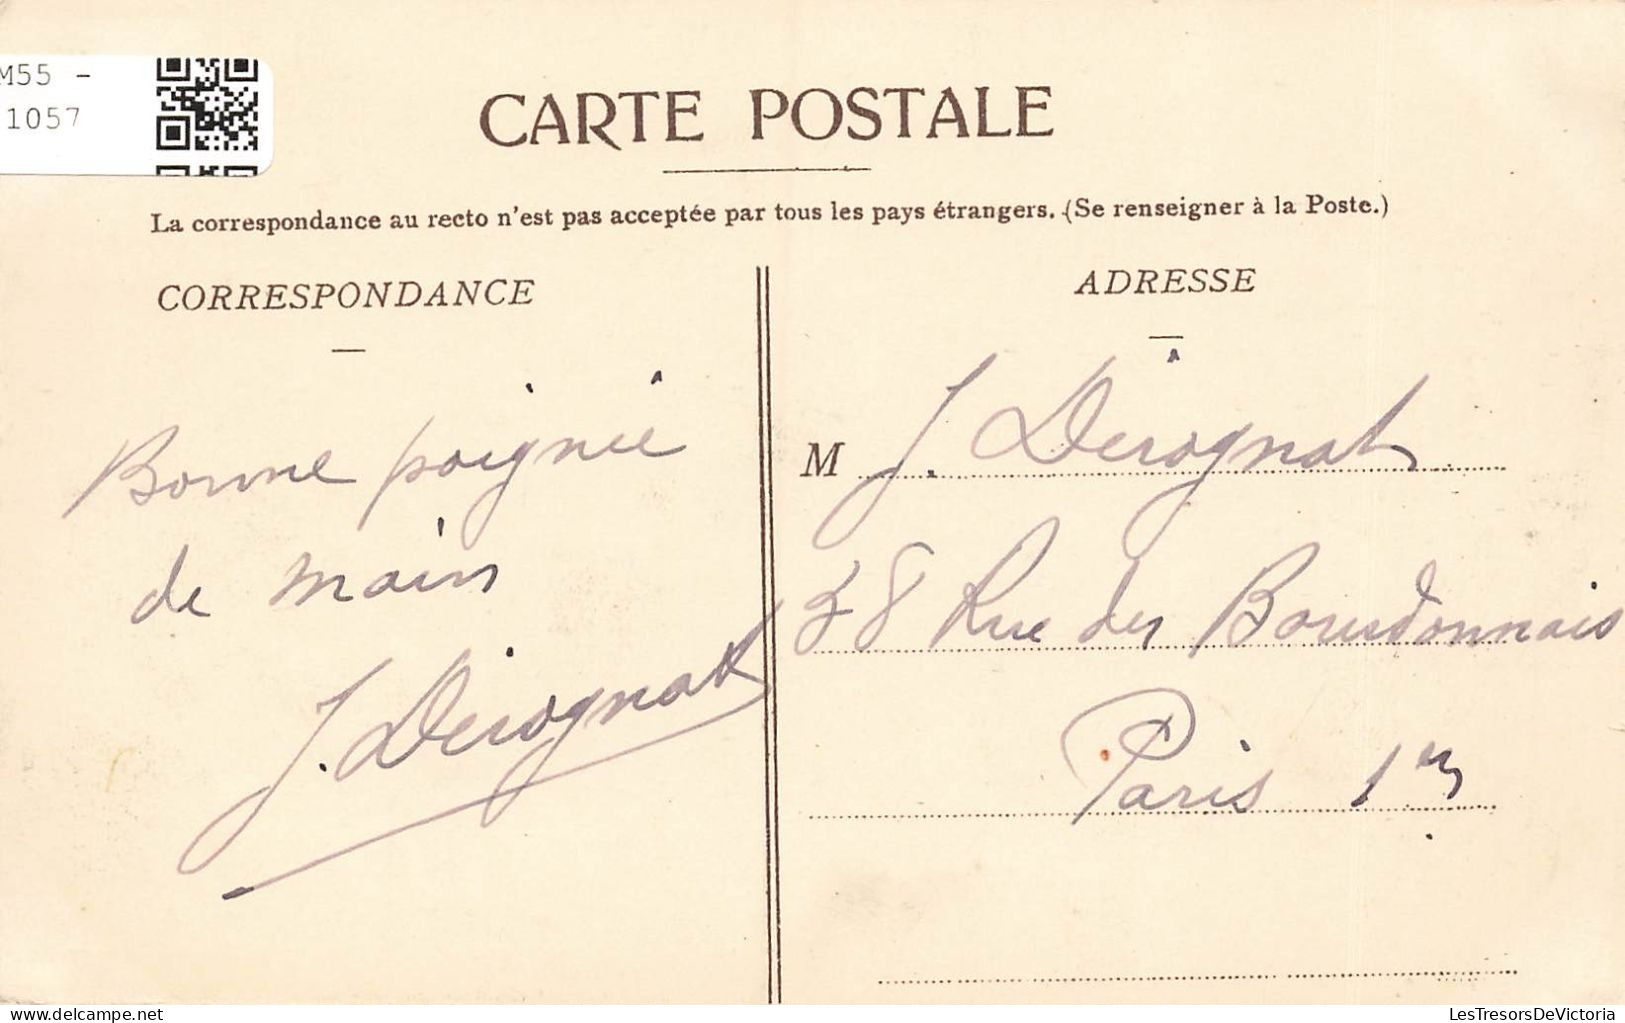 M55 -
1057
CARTE POSTALE
La correspondance au recto n'est pas acceptée par tous les pays étrangers. (Se renseigner à la Poste.)
CORRESPONDANCE
Bonne poignée
de main
J. Dérognat
ADRESSE
M J. Dérognat
38 Rue des Bourdonnais
Paris 1er
delcampe.net
LesTresorsDeVictoria